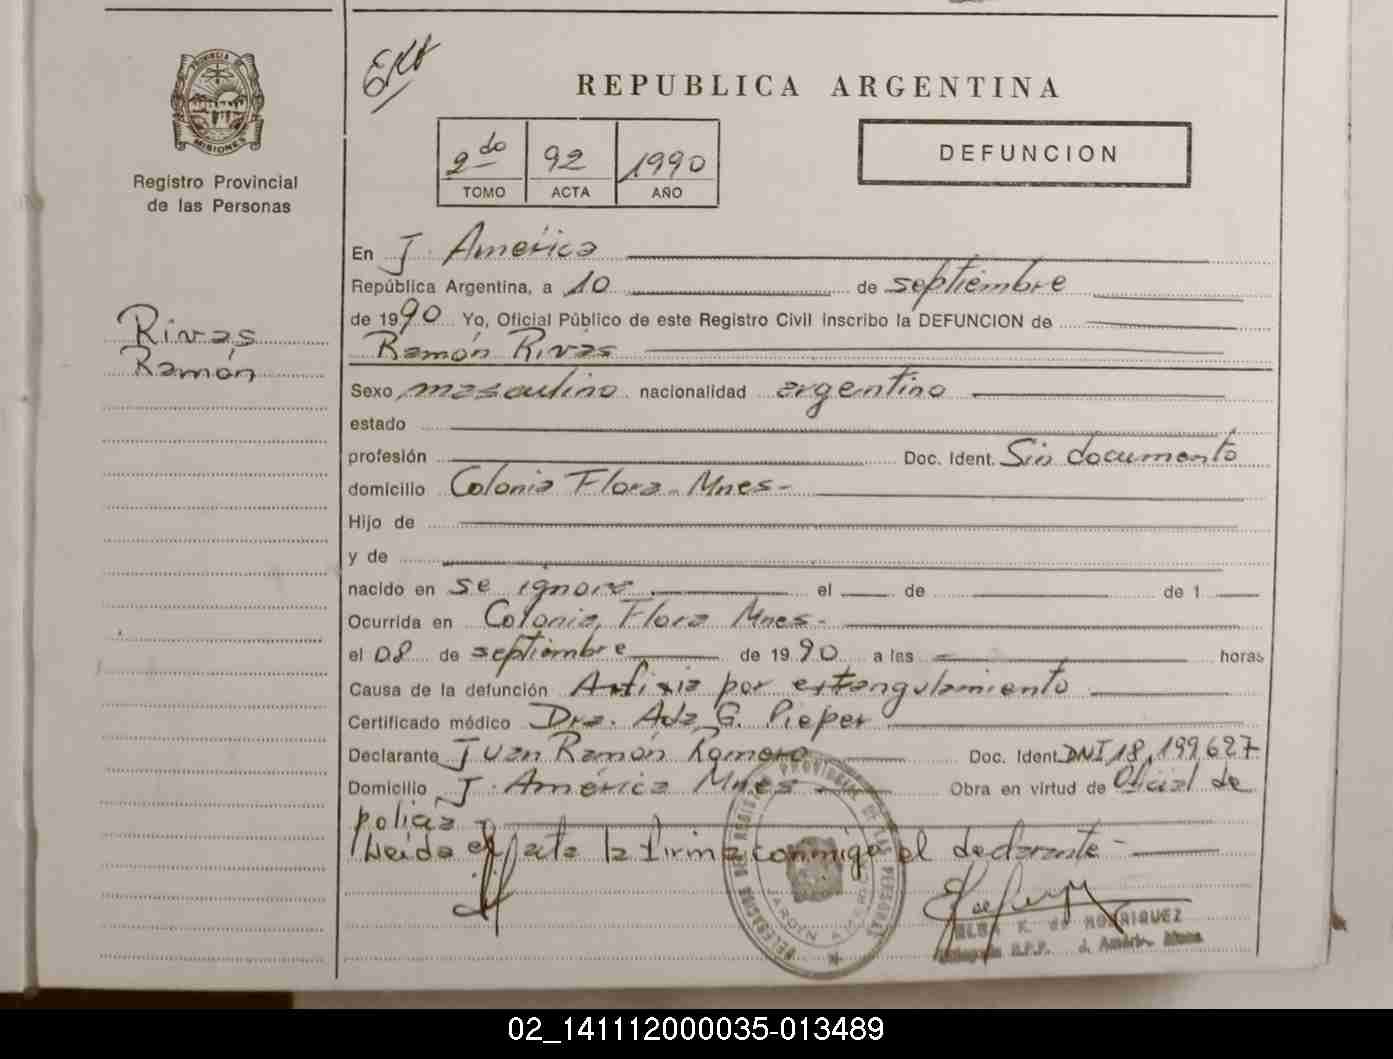 PROVINCIA DE
MISIONES
Registro Provincial
de las Personas
Rivas
Ramón
REPUBLICA ARGENTINA
2do 92 1990
TOMO ACTA AÑO
DEFUNCION
En J. América
República Argentina, a 10 de septiembre
de 1990 Yo, Oficial Público de este Registro Civil inscribo la DEFUNCION de
Ramón Rivas
Sexo masculino nacionalidad argentino
estado
profesión Doc. Ident. Sin documento
domicilio Colonia Flora - Mnes -
Hijo de
y de
nacido en se ignora el de de 1
Ocurrida en Colonia Flora Mnes -
el 08 de septiembre de 1990 a las horas
Causa de la defunción Asfixia por estangulamiento
Certificado médico Dra. Ada G. Pieper
Declarante Juan Ramón Romero Doc. Ident. DNI 18.199.627
Domicilio J. América Mnes - Obra en virtud de Oficial de
policia
Leida el acta la firma conmigo el declarante -
DELEGACION DEL REGISTRO PROVINCIAL DE LAS PERSONAS
JARDIN AMERICA
ELBA K. de RODRIGUEZ
R.P.P. J. América Mnes
02_141112000035-013489